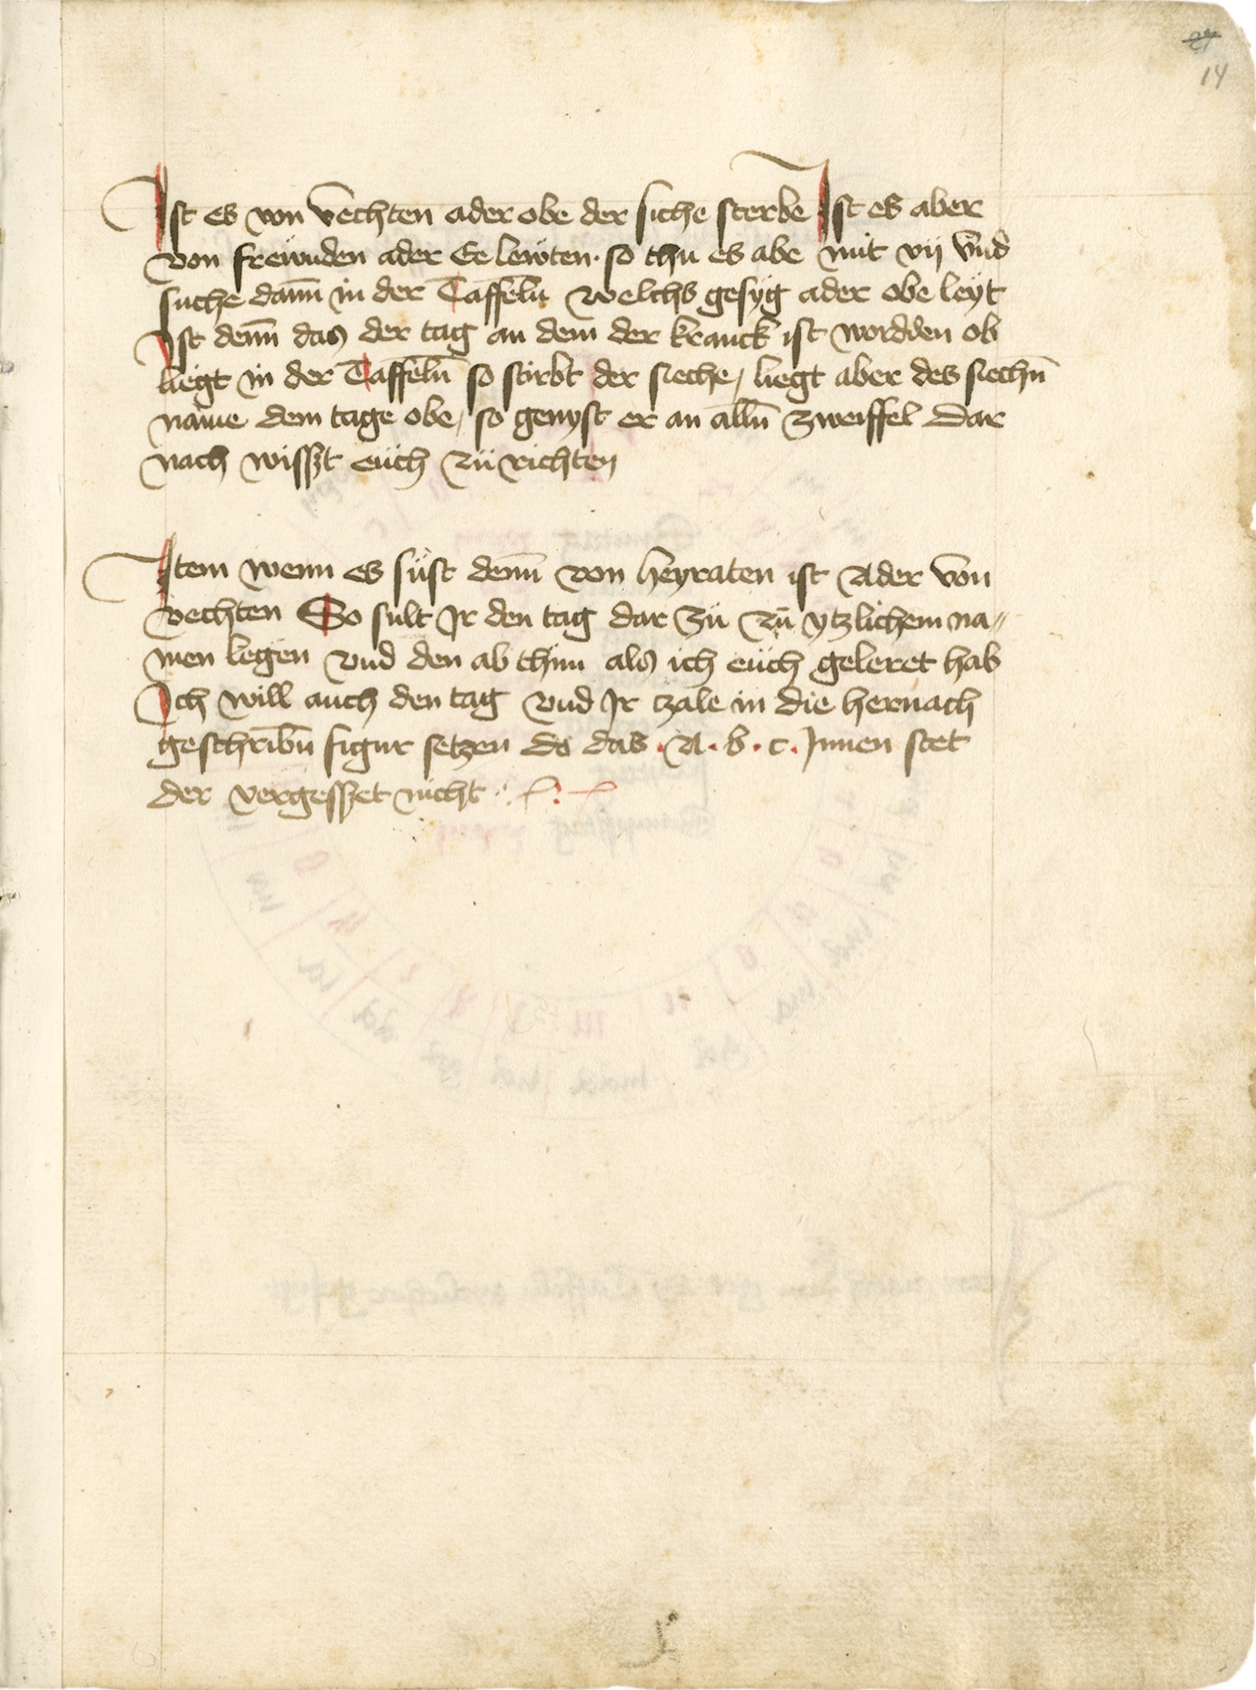 27
14
Ist es von vechten ader obe der siche sterbe Ist es aber
von frewnden ader Ee lewten · so thu es abe mit vij vnd
suche dann in der Taffeln welchs gesyg ader obe leyt
Ist denn das der tag an dem der kranck ist wordden ob
liegt in der Taffeln so stirbt der sieche / liegt aber des siechn
name dem tage obe / so genyst er an alln zweiffel Dar
nach wisszt euch zu richten
Item wenn es süst denn von heyraten ist Ader von
vechten So sult Ir den tag dar zu zu ytzlichem na〃
men legen vnd den ab thun als ich euch geleret hab
Ich will auch den tag vnd Ir tzale in die hernach
geschribn figur setzen do das · A · b · c · Innen stet
der vergesszet nicht